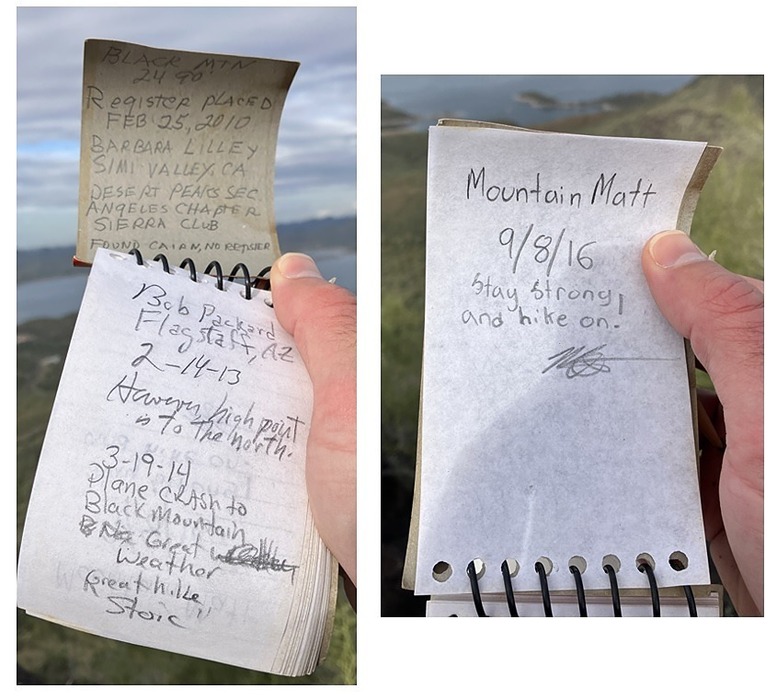 BLACK MTN
2490
REGISTER PLACED
FEB 25, 2010
BARBARA LILLEY
SIMI VALLEY, CA
DESERT PEAKS SEC
ANGELES CHAPTER
SIERRA CLUB
FOUND CAIRN, NO REGISTER
Bob Packard
Flagstaff, AZ
2-14-13
However, high point
is to the north.
3-19-14
Plane CRASH to
Black Mountain
Great
Weather
Great hike
Stoic
Mountain Matt
9/8/16
Stay strong
and hike on.